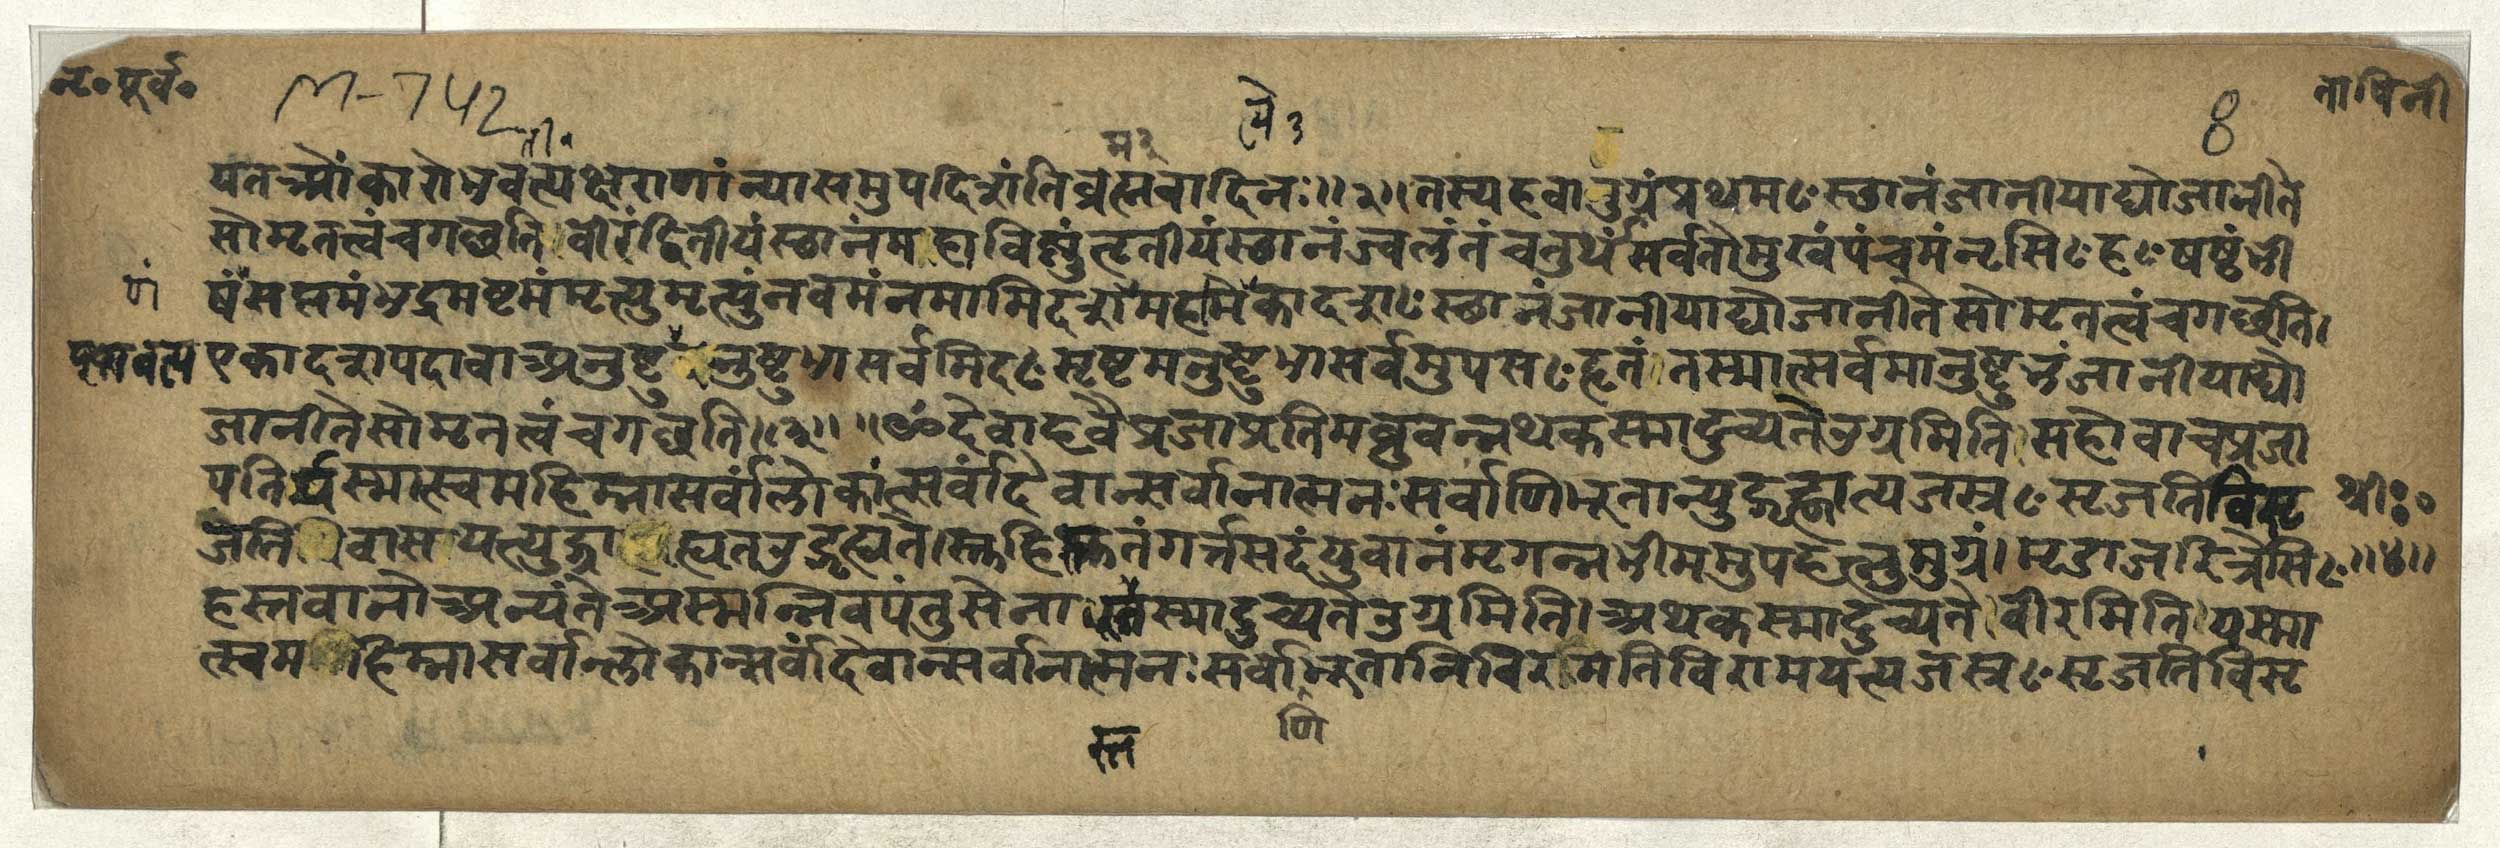 नृ॰ पूर्व॰
M-742
ता पिनी
8
यत ओंकारो भवत्यक्षराणां न्यासमुपदिशंति ब्रह्मवादिनः॥२॥ तस्य ह वा उग्रं प्रथमꣳ स्थानं जानीयाद्यो जानीते
सोमृतत्वं च गछति। वीरं द्वितीयं स्थानं महाविष्णुं तृतीयं स्थानं ज्वलंतं चतुर्थं सर्वतोमुखं पंचमं नृसिꣳहꣳ षष्ठं भी
षणं सप्तमं भद्रमष्टमं मृत्युमृत्युं नवमं नमामि दशममहमेकादशꣳ स्थानं जानीयाद्यो जानीते सोमृतत्वं च गछति।
एकादशपदा वा अनुष्टुब्भवत्यनुष्टुभा सर्वमिदꣳ सृष्टमनुष्टुभा सर्वमुपसꣳहृतं। तस्मात्सर्वमानुष्टुभं जानीयाद्यो
जानीते सोमृतत्वं च गछति।३॥ ॥ॐ देवा ह वै प्रजाप्रतिमब्रुवन्नथ कस्मादुच्यते उग्रमिति। स होवाच प्रजा
पतिर्यस्मात्स्वमहिम्ना सर्वांलोकांत्सर्वांदेवान्सर्वानात्मनः सर्वाणि भूतान्युद्गृह्णात्यजस्रꣳ सृजति विसृ
जति वासायत्युद्ग्रा ह्यत उद्गृह्यते। स्तुहि श्रुतं गर्त्तसदं युवानं मृगन्न भीममुपहत्नुमुग्रं। मृडाजरित्रेसिꣳ॥४॥
हस्तवानो अन्यंते अस्मन्निवपंतु सेना स्तस्मादुच्यते उग्रमिति। अथ कस्मादुच्यते वीरमिति। यस्मा
त्स्वमहिम्ना सर्वान्लोकान्सर्वांदेवान्सर्वानात्मनः सर्वाणि भूतानि विरमति विरामयत्यजस्रꣳ सृजति विसृ
णि